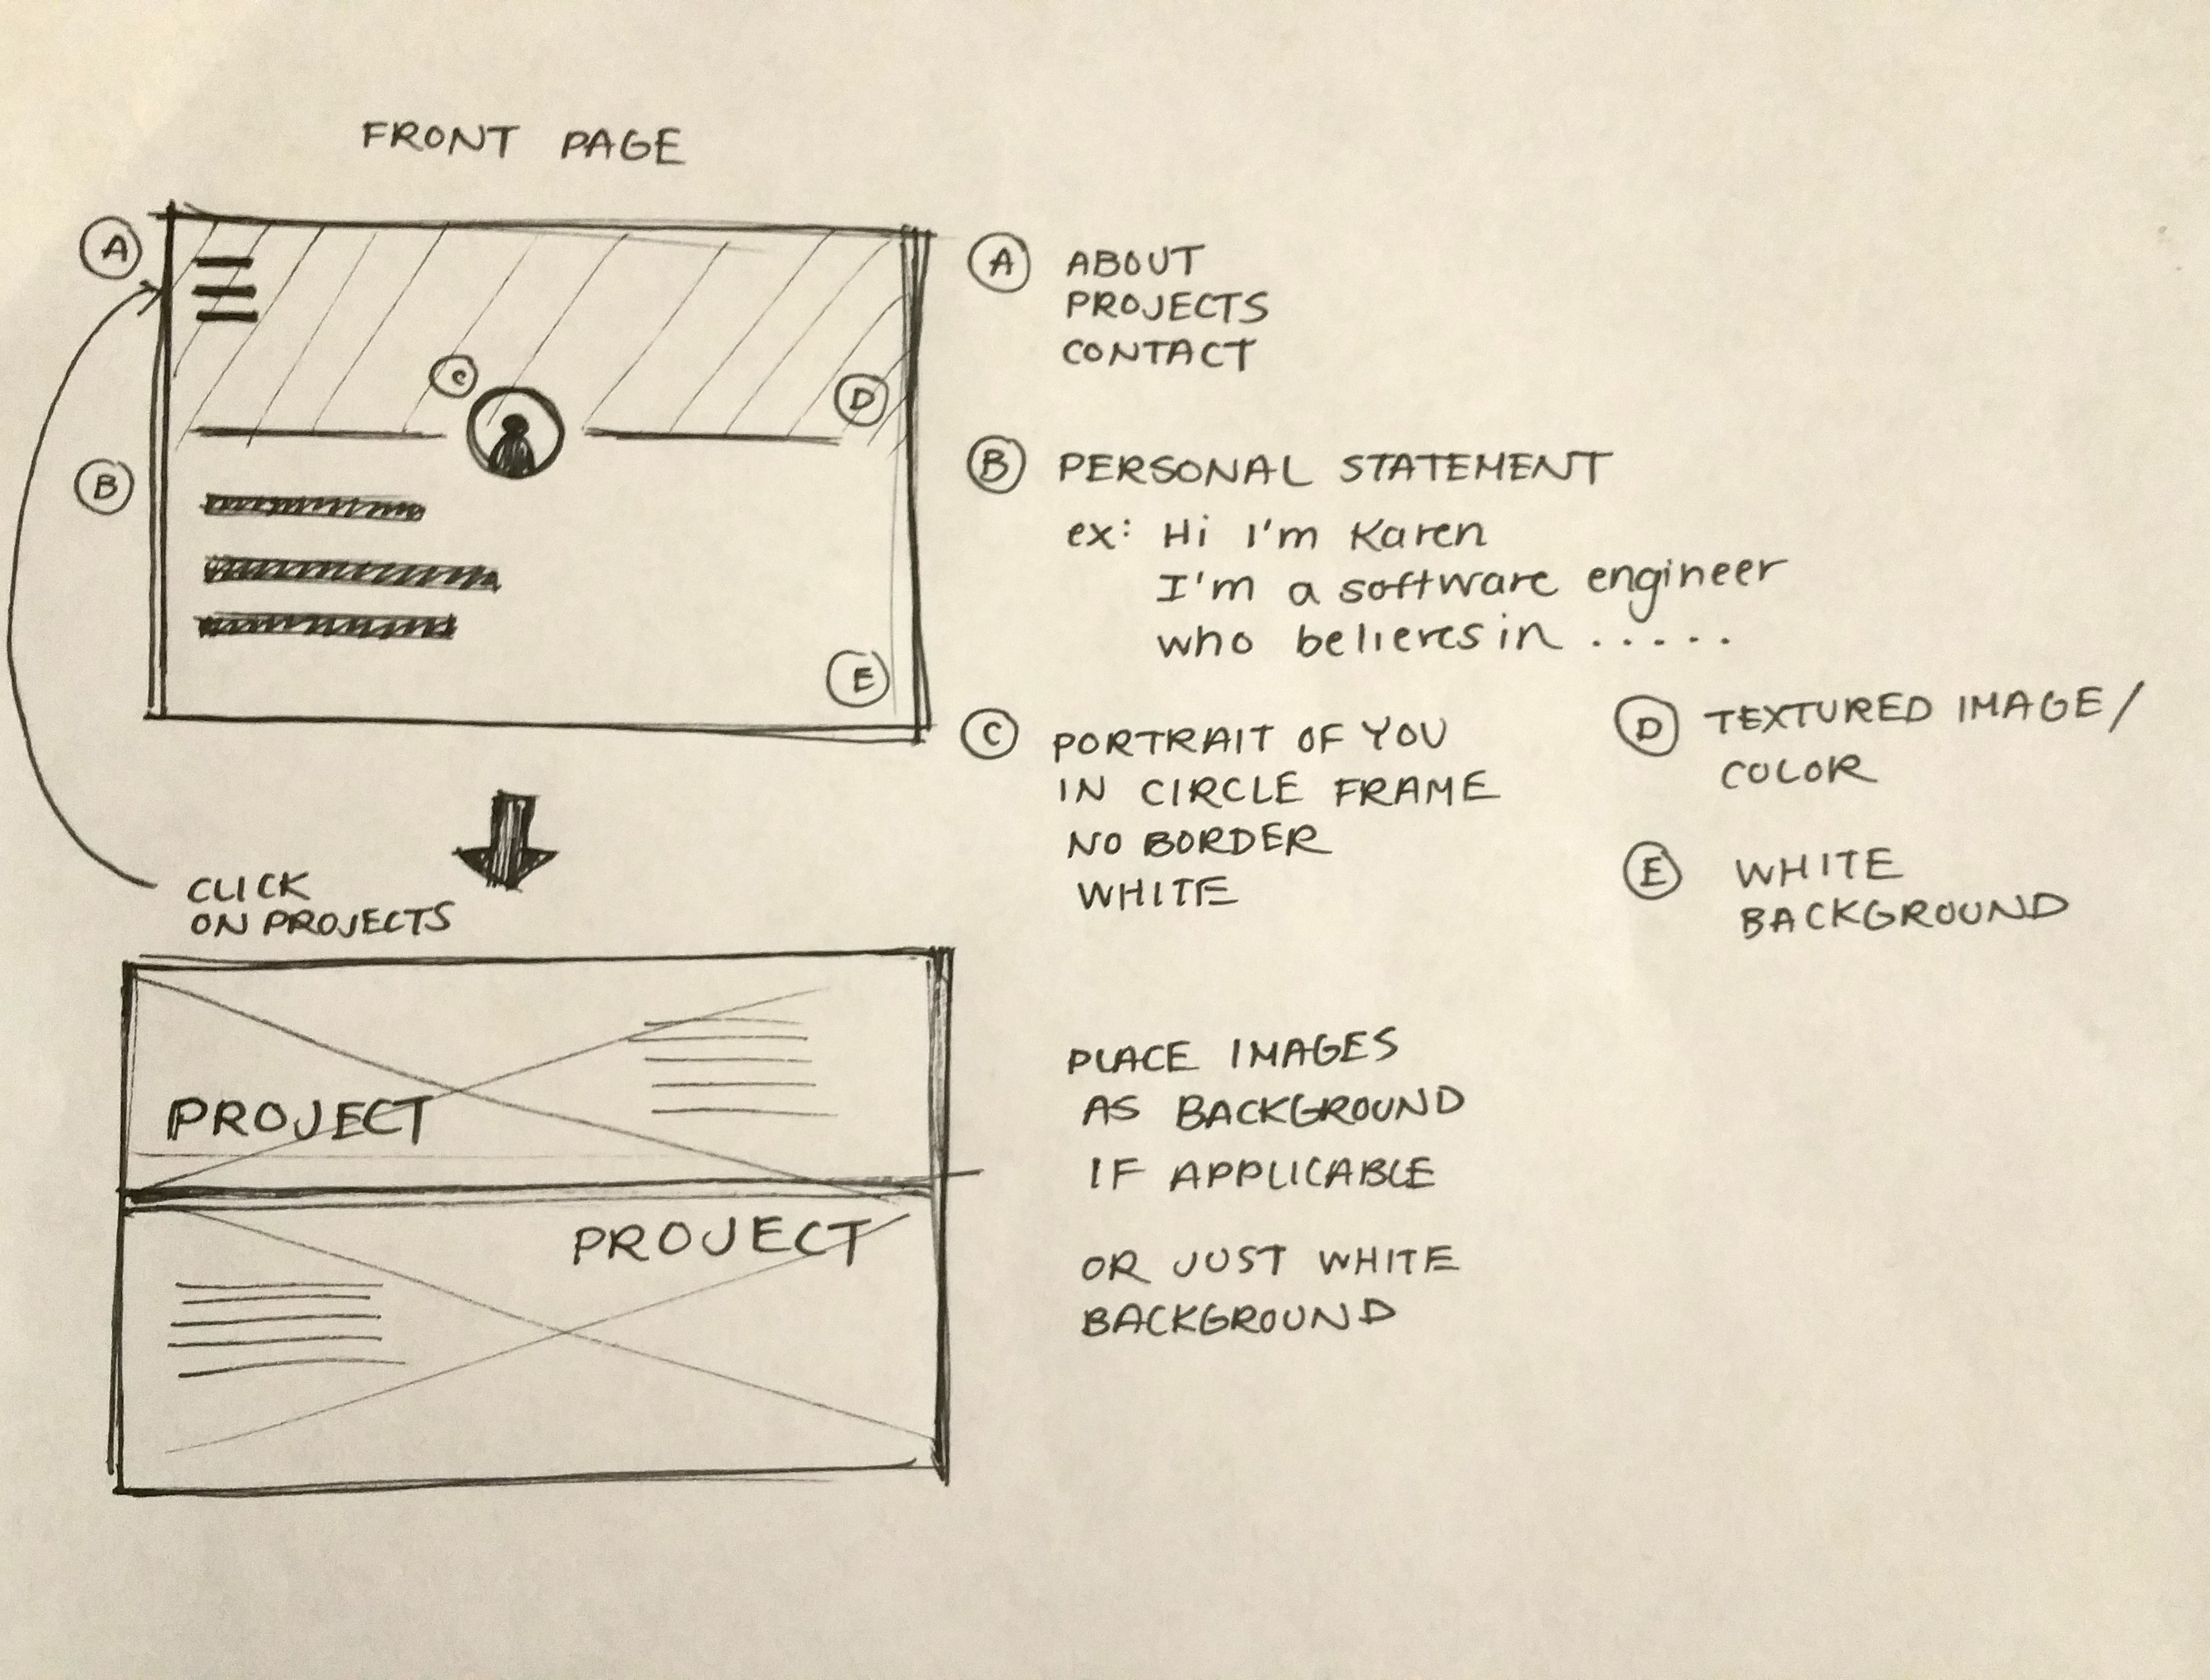 FRONT PAGE
A
C
D
B
E
A ABOUT
PROJECTS
CONTACT
B PERSONAL STATEMENT
ex: Hi I'm Karen
I'm a software engineer
who believes in .....
C PORTRAIT OF YOU
IN CIRCLE FRAME
NO BORDER
WHITE
D TEXTURED IMAGE/
COLOR
E WHITE
BACKGROUND
CLICK
ON PROJECTS
PROJECT
PROJECT
PLACE IMAGES
AS BACKGROUND
IF APPLICABLE
OR JUST WHITE
BACKGROUND